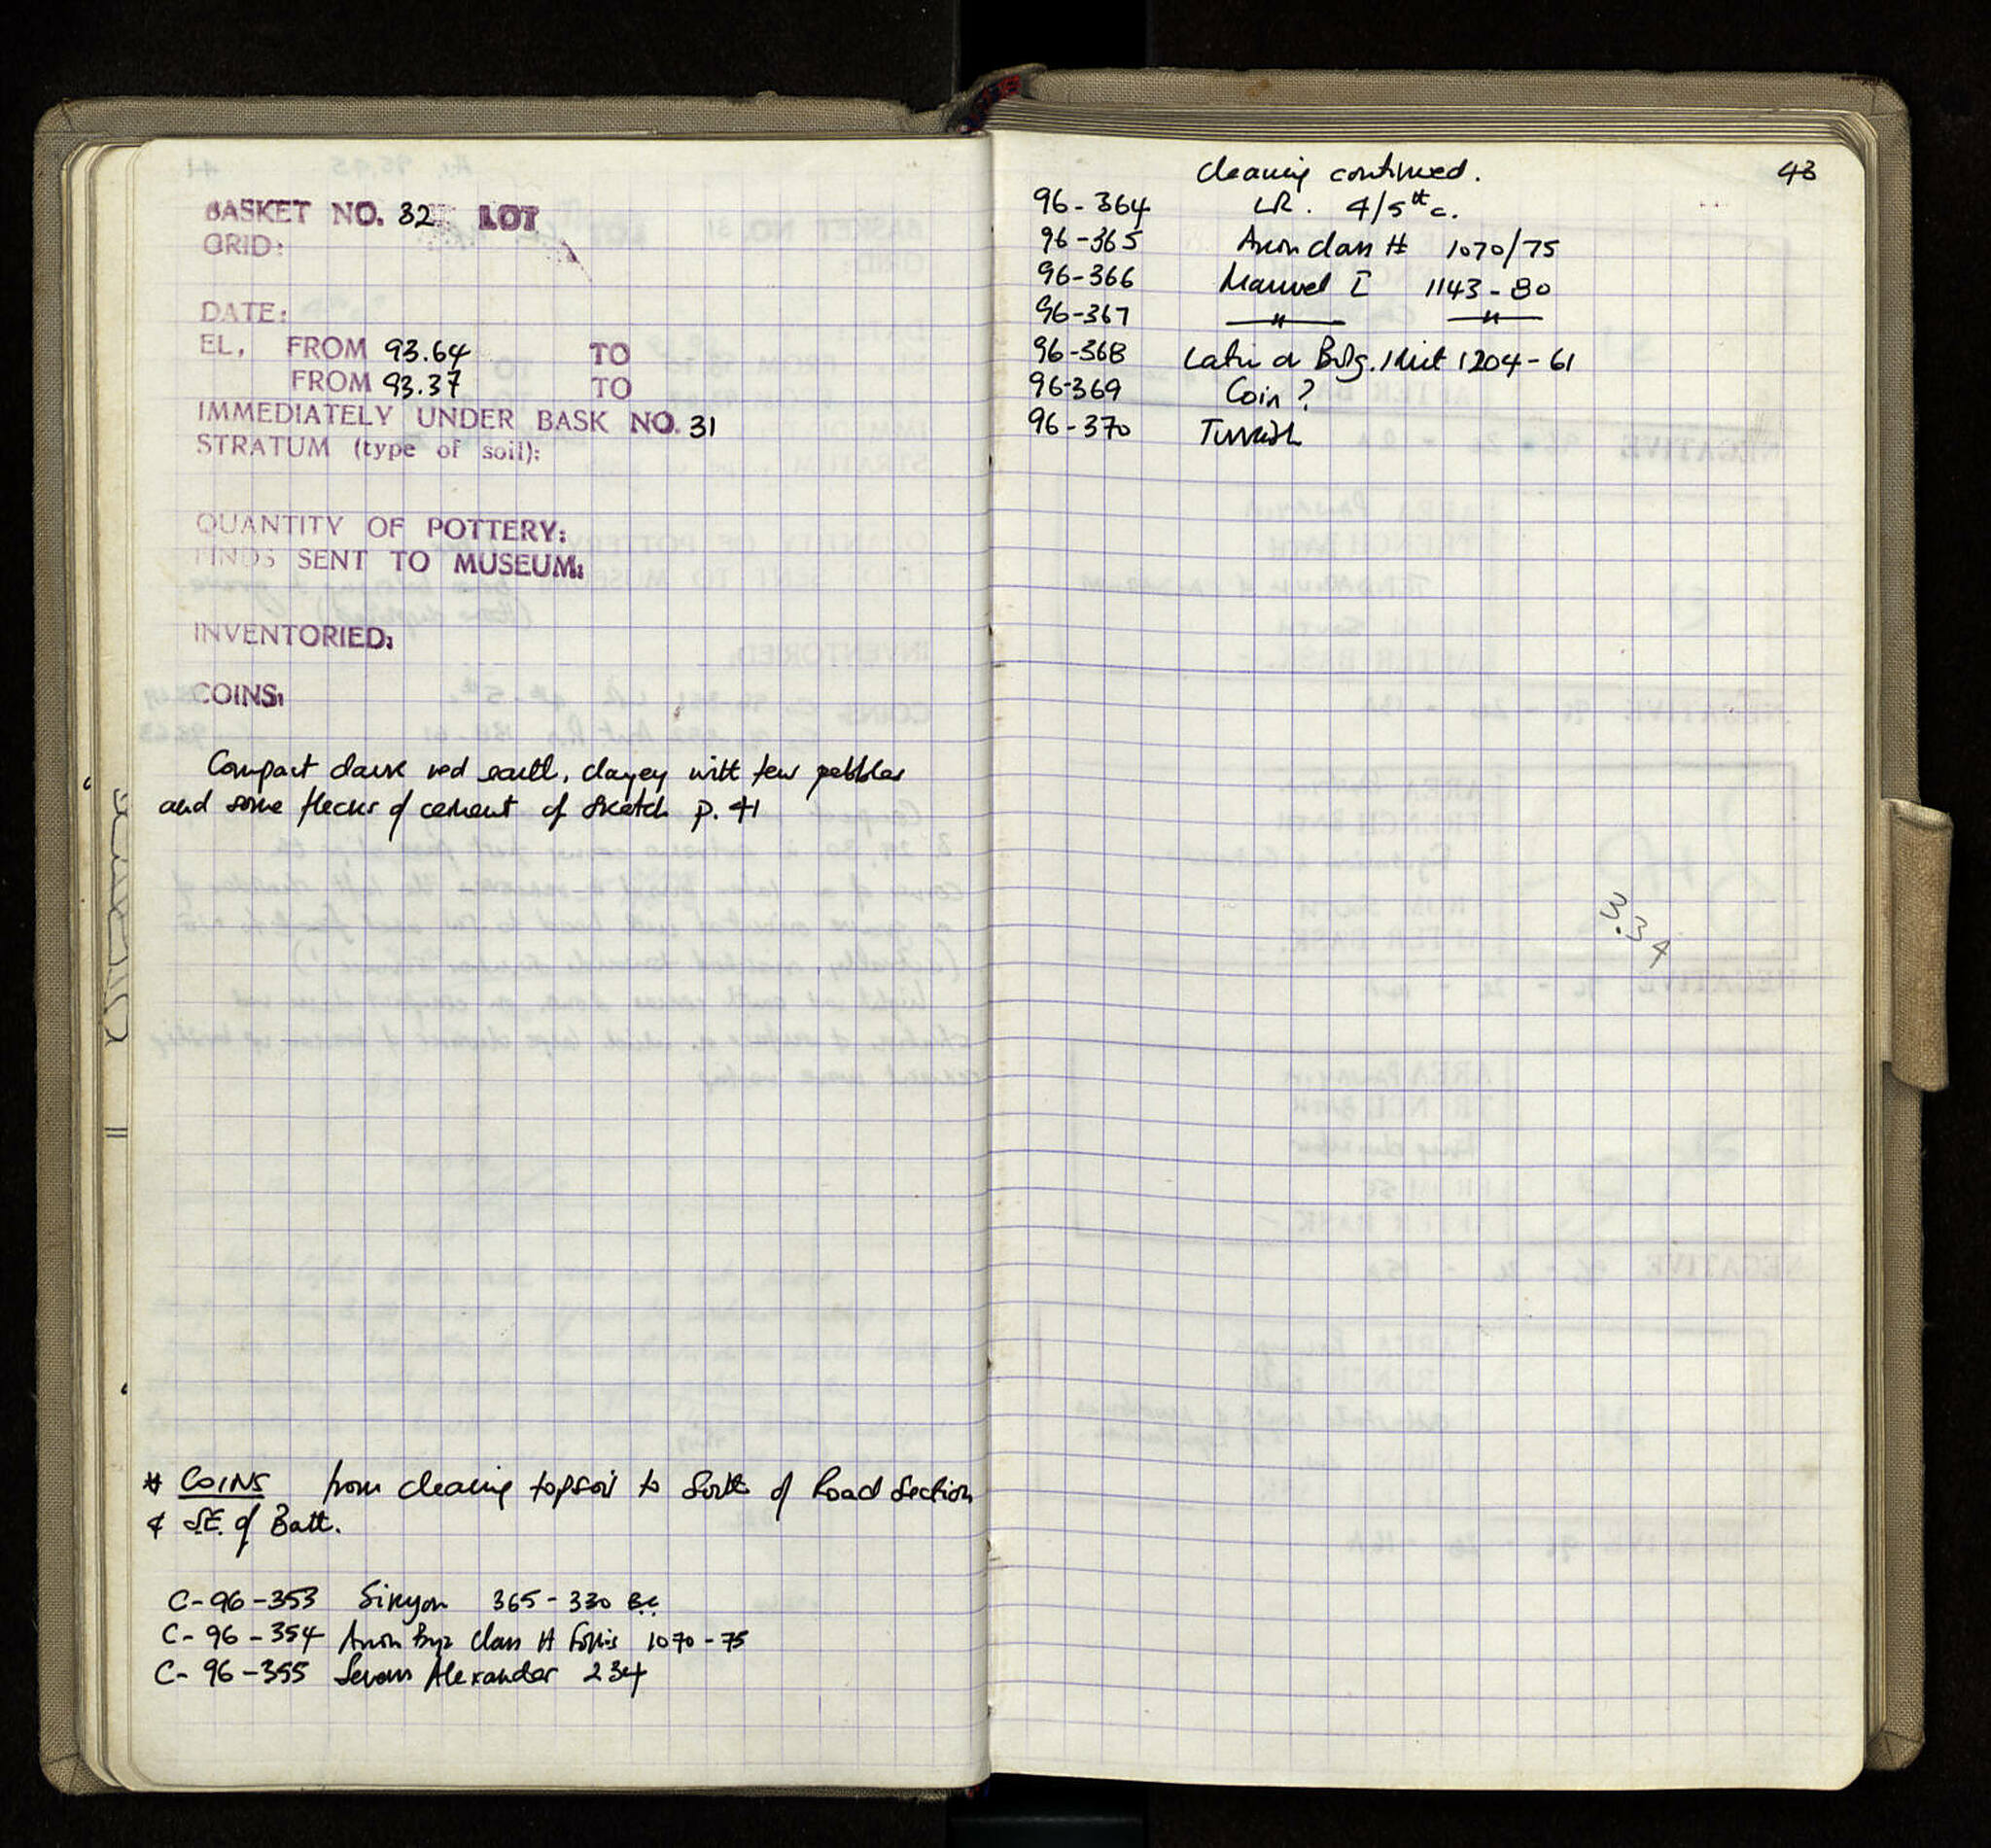 BASKET NO. 32 LOT
GRID:
DATE:
EL, FROM 93.64 TO
FROM 93.37 TO
IMMEDIATELY UNDER BASK NO. 31
STRATUM (type of soil):
QUANTITY OF POTTERY:
FINDS SENT TO MUSEUM:
INVENTORIED:
COINS:
Compact dark red earth, clayey with few pebbles
and some flecks of cement cf sketch p. 41
* COINS from cleaning topsoil to South of Road Section
& SE of Bath.
C-96-353 Sikyon 365-330 BC
C-96-354 Anon Byz Class H Follis 1070-75
C-96-355 Severus Alexander 234
43
cleaning continued.
96-364 LR. 4/5th c.
96-365 Anon class H 1070/75
96-366 Manuel I 1143-80
96-367 —"— —"—
96-368 Latin or Bulg. Imit 1204-61
96-369 Coin?
96-370 Turkish
3.34